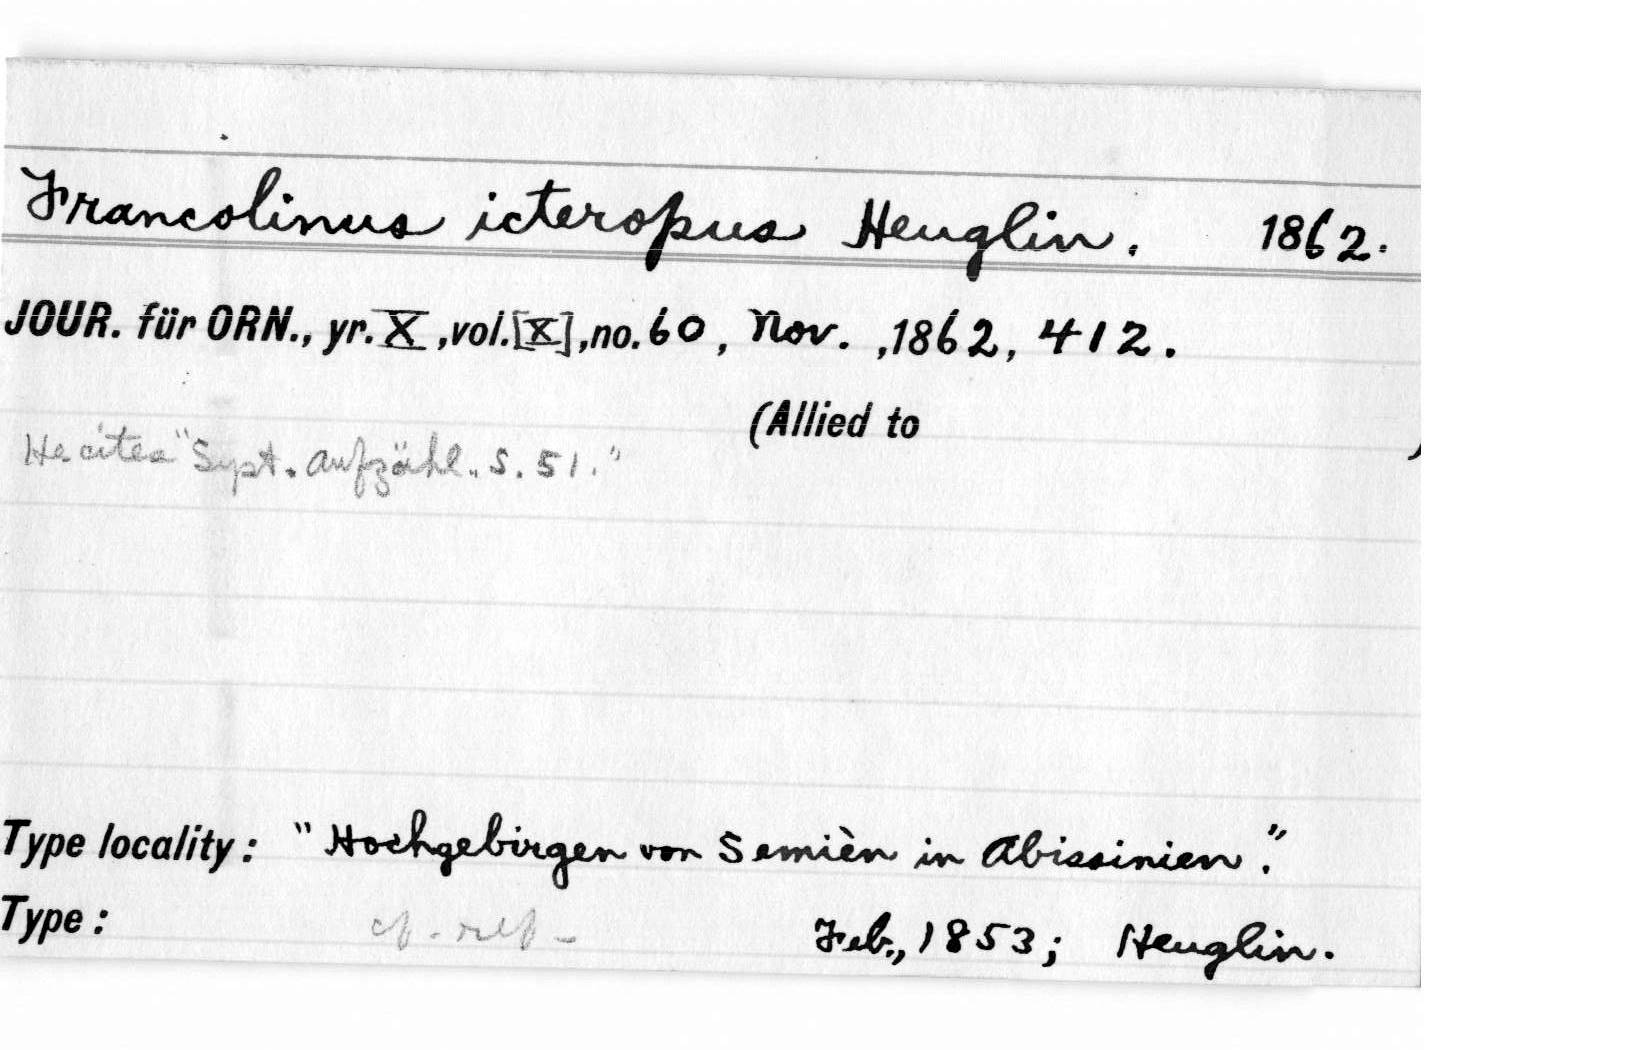 Francolinus icteropus Heuglin. 1862.
JOUR. für ORN., yr. X, vol. [X], no. 60, Nov., 1862, 412.
(Allied to )
He cites "Syst. Aufzähl. S. 51."
Type locality: "Hochgebirgen von Semièn in Abissinien."
Type: cf. Feb., 1853; Heuglin.